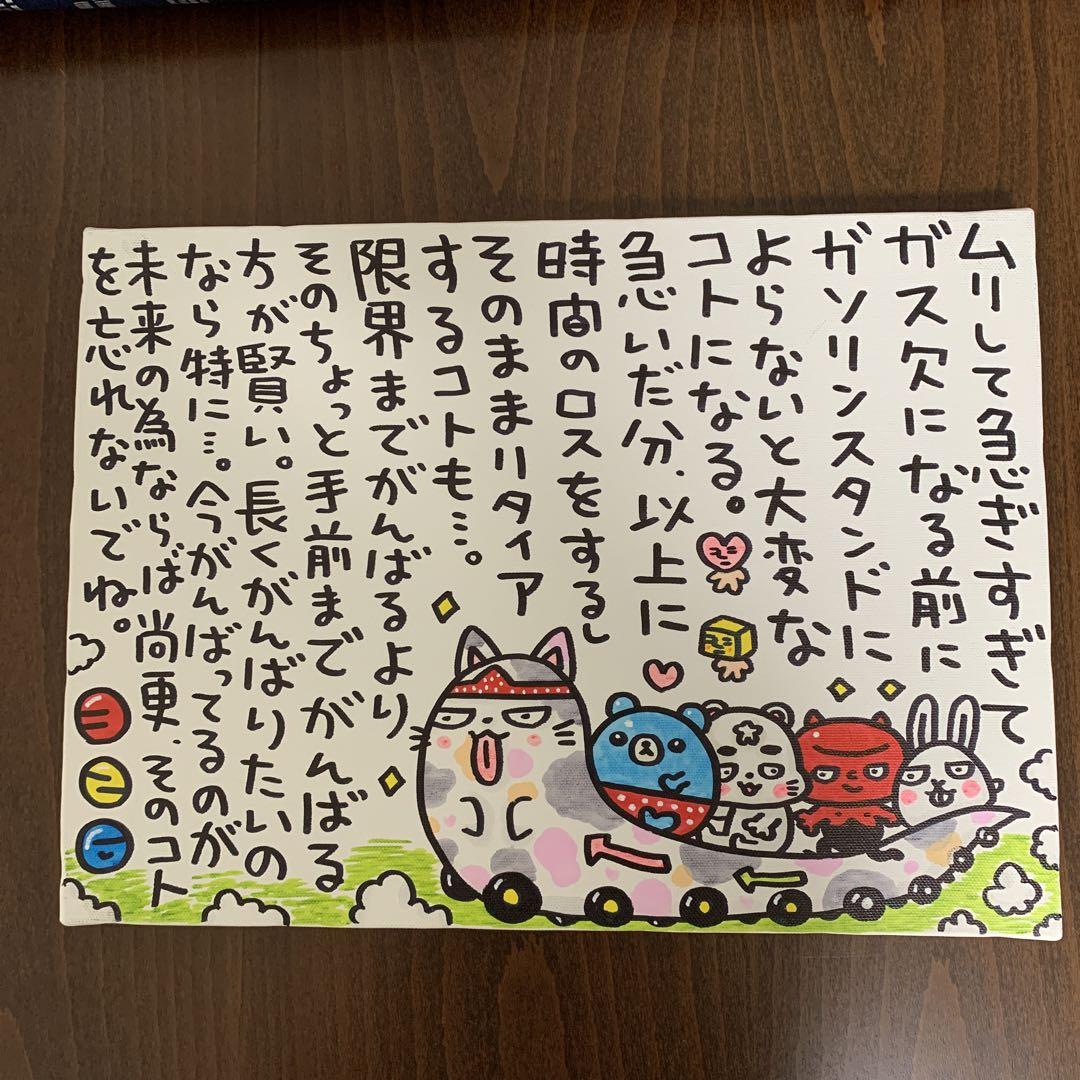 ムリして急ぎすぎて
ガス欠になる前に
ガソリンスタンドに
よらないと大変な
コトになる。
急いだ分、以上に
時間のロスをするし
そのままリタイア
するコトも…。
限界までがんばるより
そのちょっと手前までがんばる
方が賢い。長くがんばりたいの
なら特に…。今がんばってるのが
未来の為ならば尚更、そのコト
を忘れないでね。
ヨ